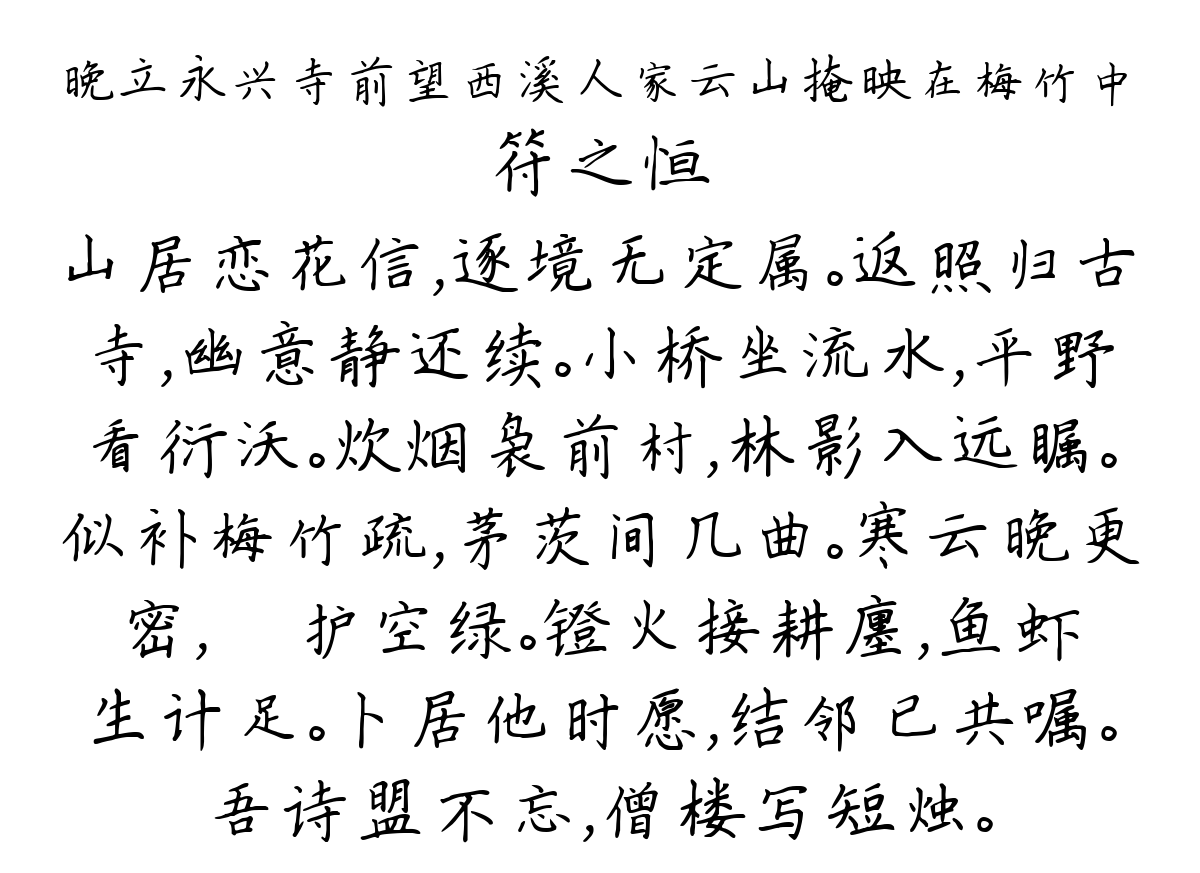 晚立永兴寺前望西溪人家云山掩映在梅竹中
符之恒
山居恋花信,逐境无定属。返照归古
寺,幽意静还续。小桥坐流水,平野
看衍沃。炊烟袅前村,林影入远瞩。
似补梅竹疏,茅茨间几曲。寒云晚更
密, 护空绿。镫火接耕廛,鱼虾
生计足。卜居他时愿,结邻已共嘱。
吾诗盟不忘,僧楼写短烛。